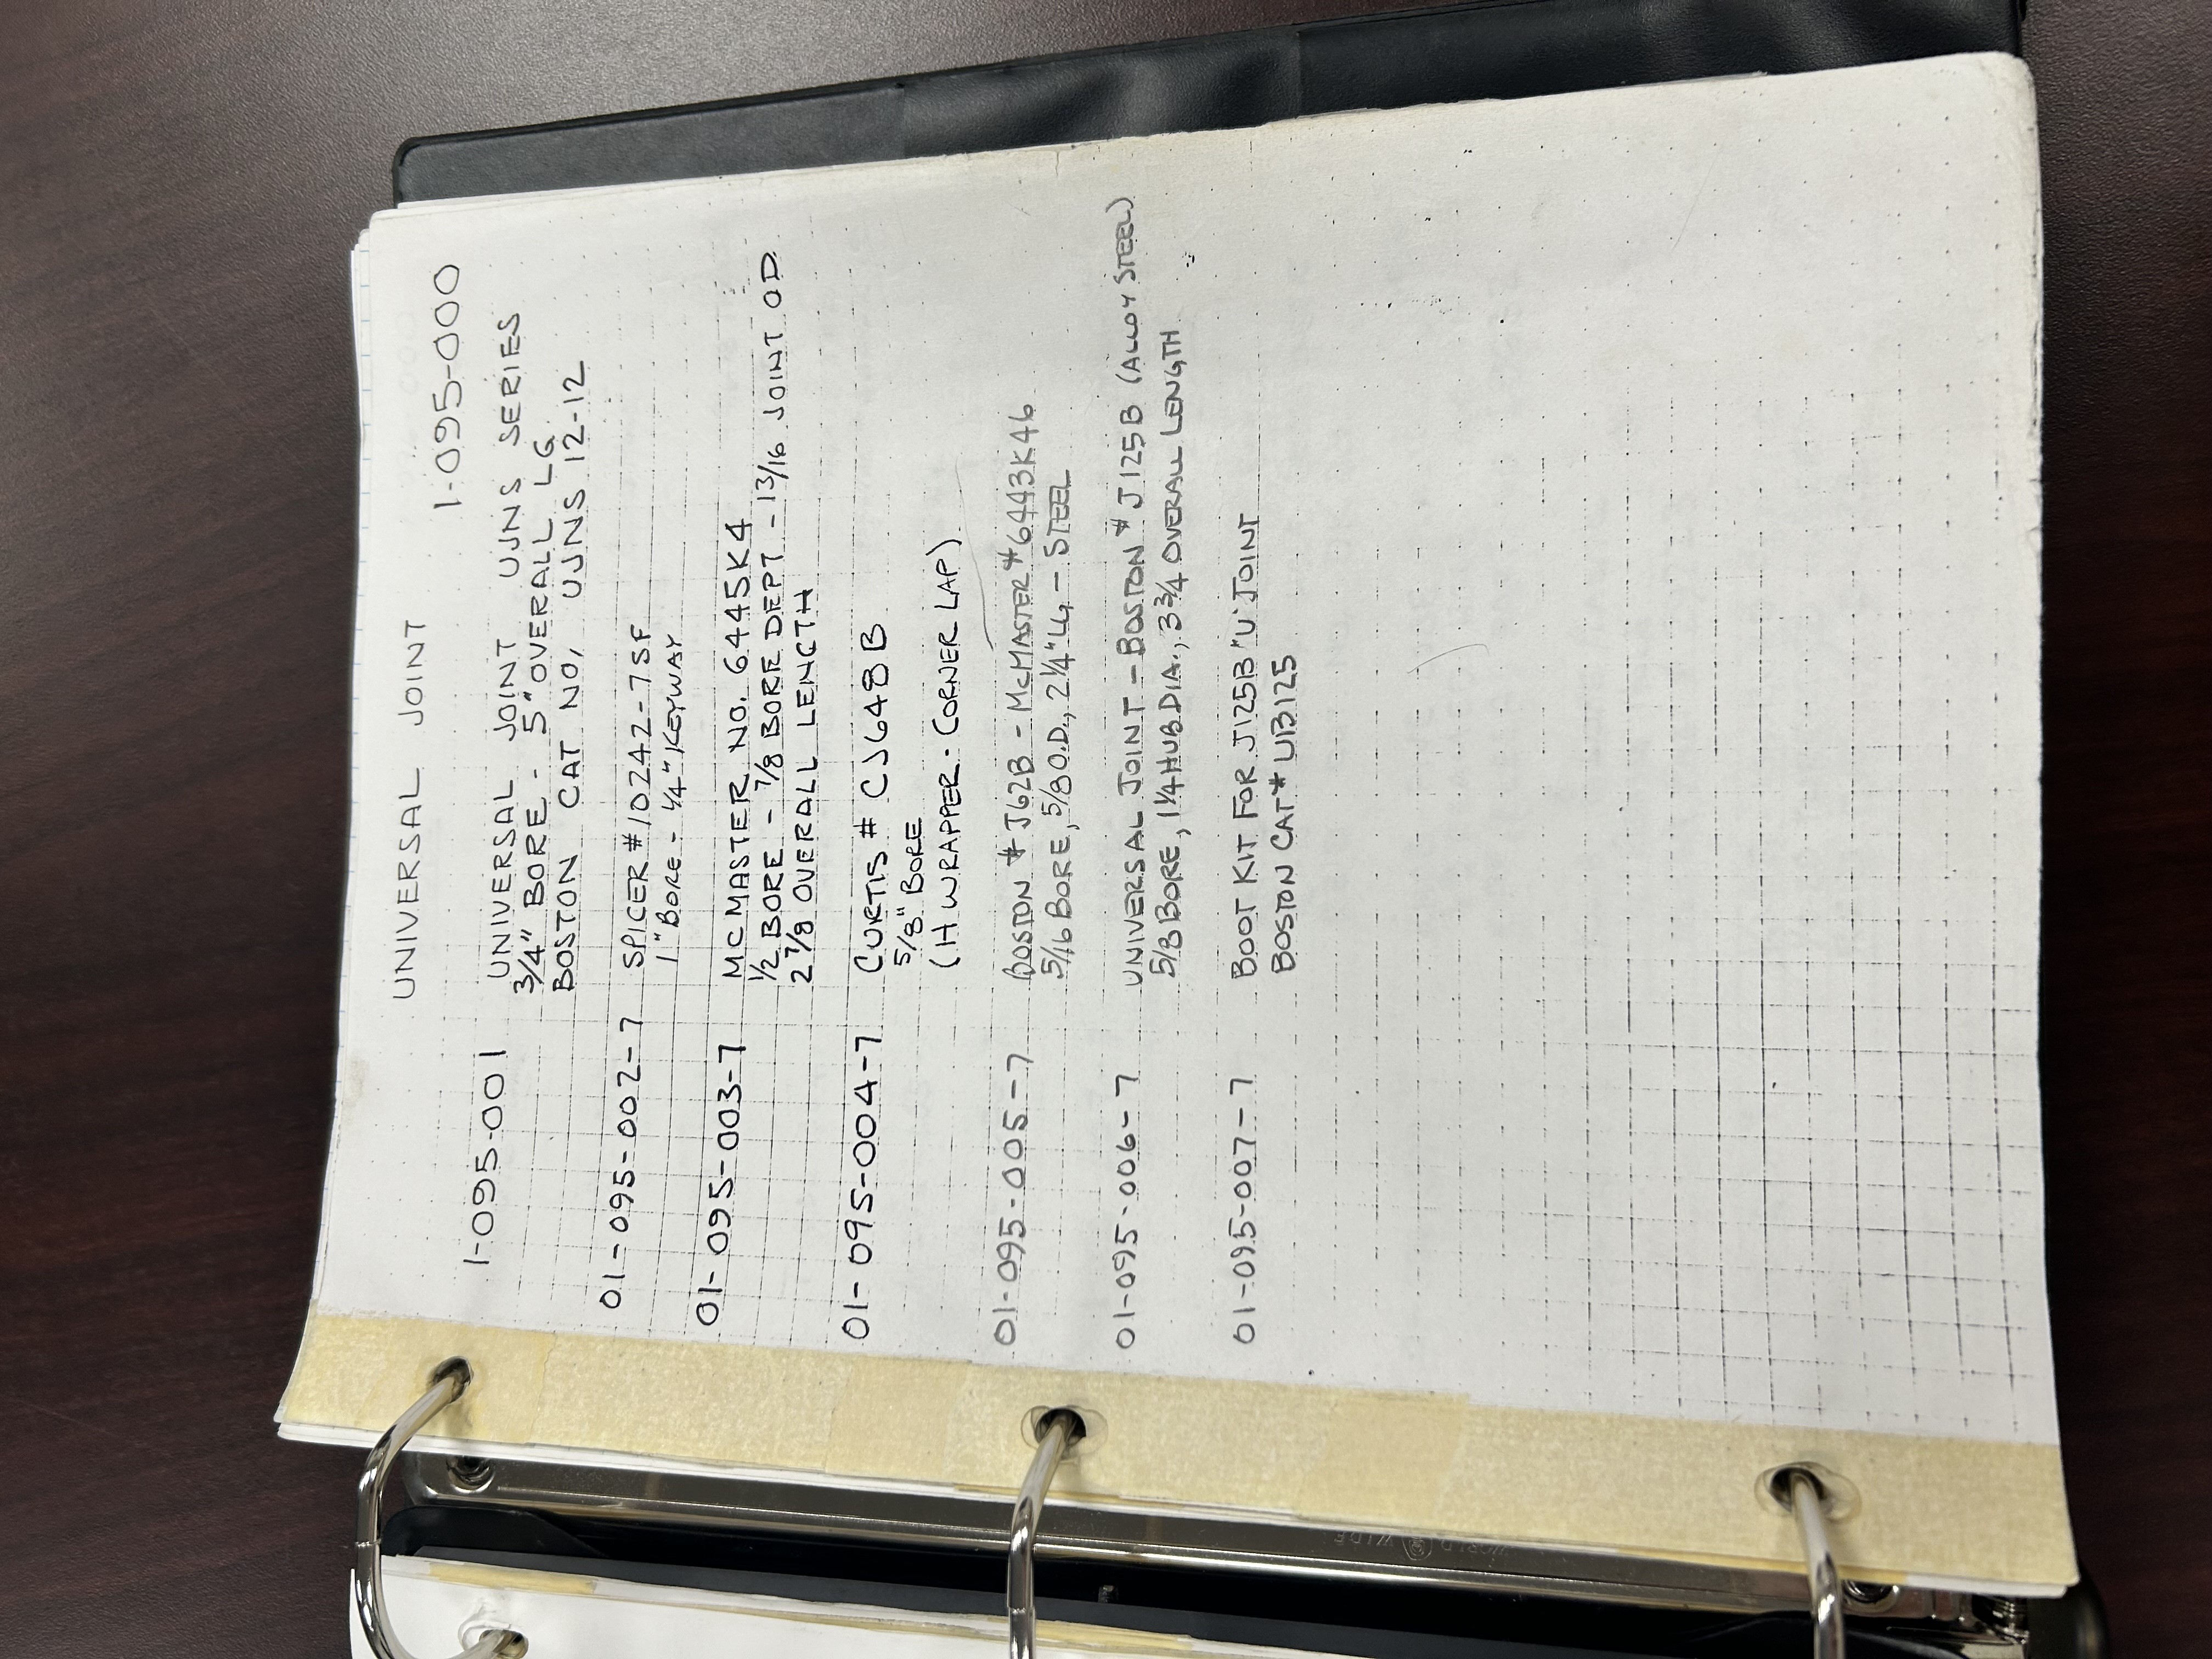 UNIVERSAL JOINT
1-095-000
1-095-001 UNIVERSAL JOINT UJNS SERIES
3/4" BORE - 5" OVERALL LG.
BOSTON CAT NO, UJNS 12-12
01-095-002-7 SPICER #10242-7SF
1" BORE - 1/4" KEYWAY
01-095-003-7 MCMASTER NO. 6445K4
1/2 BORE - 7/8 BORE DEPT - 13/16 JOINT O.D.
2 7/8 OVERALL LENGTH
01-095-004-7 CURTIS # CJ648B
5/8" BORE
(H WRAPPER - CORNER LAP)
01-095-005-7 BOSTON # J62B - MCMASTER #6443K46
5/16 BORE, 5/8 O.D., 2 1/4" LG - STEEL
01-095-006-7 UNIVERSAL JOINT - BOSTON # J125B (ALLOY STEEL)
5/8 BORE, 1 1/4 HUB DIA., 3 3/4 OVERALL LENGTH
01-095-007-7 BOOT KIT FOR J125B "U" JOINT
BOSTON CAT # UB125
WORLD WIDE